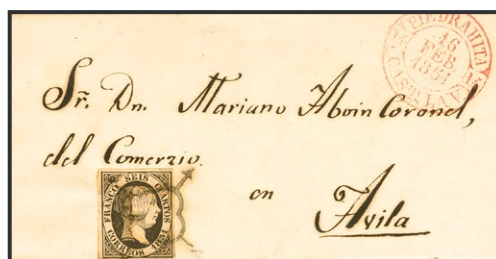 PIEDRAHITA
16
FEB
1851
Sr. Dn. Mariano Aboin Coronel,
del Comerzio.
en
Avila
FRANCO SEIS CUARTOS
CORREOS 1851